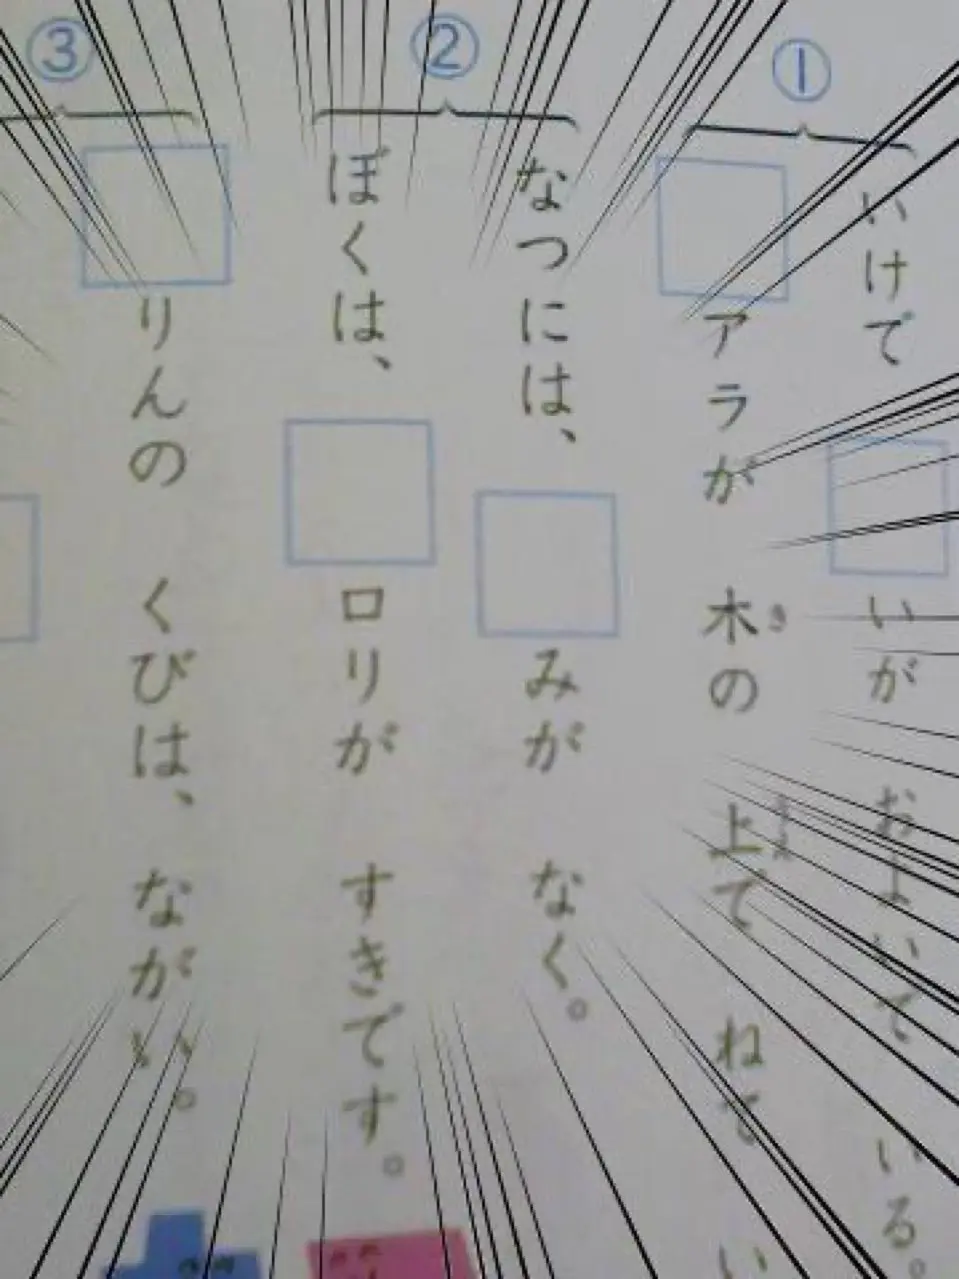 ①
いけで □いが およいで いる。
□アラが 木の 上で ねて い
き
②
なつには、□みが なく。
ぼくは、□ロリが すきです。
③
□りんの くびは、ながい。